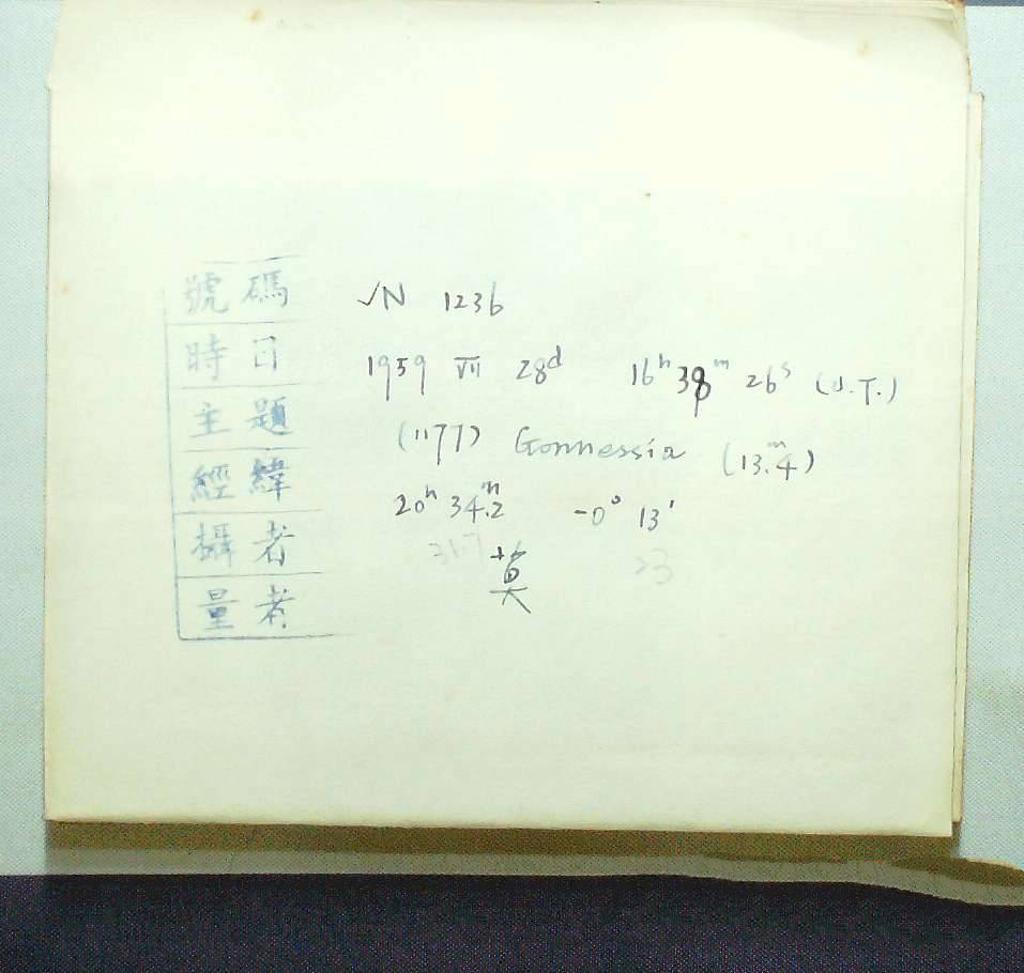 號碼 √N 1236
時日 1959 VII 28d 16h 38m 26s (U.T.)
主題 (1177) Gonnessia (13.4m)
經緯 20h 34m.2 -0° 13'
31.7 23
攝者 莫
量者